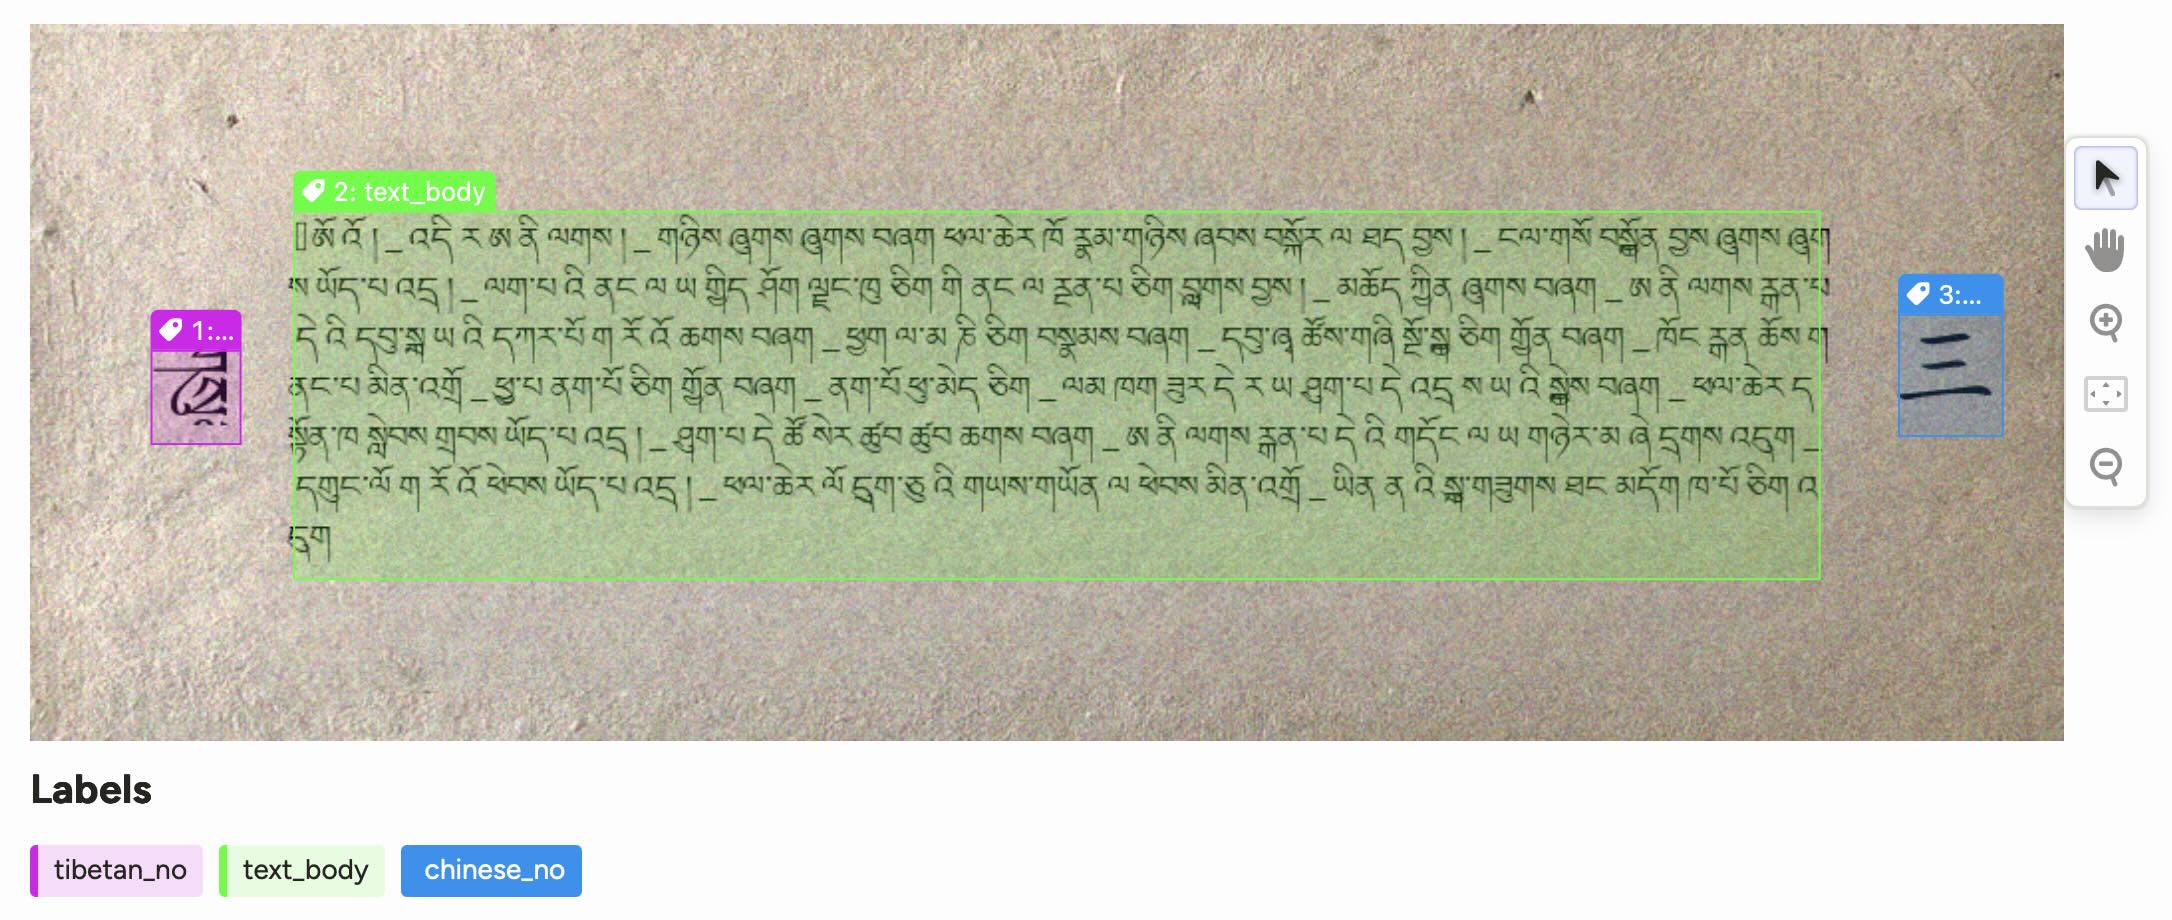 2: text_body
ཨོ་འོ ། _ འདི ར ཨ ནི ལགས ། _ གཉིས ཞུགས ཞུགས བཞག ཕལ་ཆེར ཁོ རྣམ་གཉིས ཞབས བསྐོར ལ ཐད བྱས ། _ ངལ་གསོ བསྒྲོན བྱས ཞུགས ཞུག
ས ཡོད་པ འདྲ ། _ ལག་པ འི ནང ལ ཡ གྱིད ཤོག ལྗང་ཁུ ཅིག གི ནང ལ རྔན་པ ཅིག བླུགས བྱས ། _ མཆོད ཀྱིན ཞུགས བཞག _ ཨ ནི ལགས རྒན་པ
1:...
3:...
དེ འི དབུ་སྐྲ ཡ འི དཀར་པོ ག རོ འོ ཆགས བཞག _ ཕྱག ལ་མ ཎི ཅིག བསྣམས བཞག _ དབུ་ཞྭ ཚོས་གཞི སྔོ་སྐྱ ཅིག གྱོན བཞག _ ཁོང རྒན ཆོས ག
三
ནང་པ མིན་འགྲོ _ ཕྱུ་པ ནག་པོ ཅིག གྱོན བཞག _ ནག་པོ ཕུ་མེད ཅིག _ ལམ ཁག ཟུར དེ ར ཡ ཤུག་པ དེ འདྲ ས ཡ འི སྐྱེས བཞག _ ཕལ་ཆེར ད
སྟོན་ཁ སླེབས གྲབས ཡོད་པ འདྲ ། _ ཤུག་པ དེ ཚོ སེར ཚུབ ཚུབ ཆགས བཞག _ ཨ ནི ལགས རྒན་པ དེ འི གདོང ལ ཡ གཉེར་མ ཞེ དྲགས འདུག _
དགུང་ལོ ག རོ འོ ཕེབས ཡོད་པ འདྲ ། _ ཕལ་ཆེར ལོ དྲུག་ཅུ འི གཡས་གཡོན ལ ཕེབས མིན་འགྲོ _ ཡིན ན འི སྐུ་གཟུགས ཐང མདོག ཁ་པོ ཅིག འ
དུག
Labels
tibetan_no
text_body
chinese_no